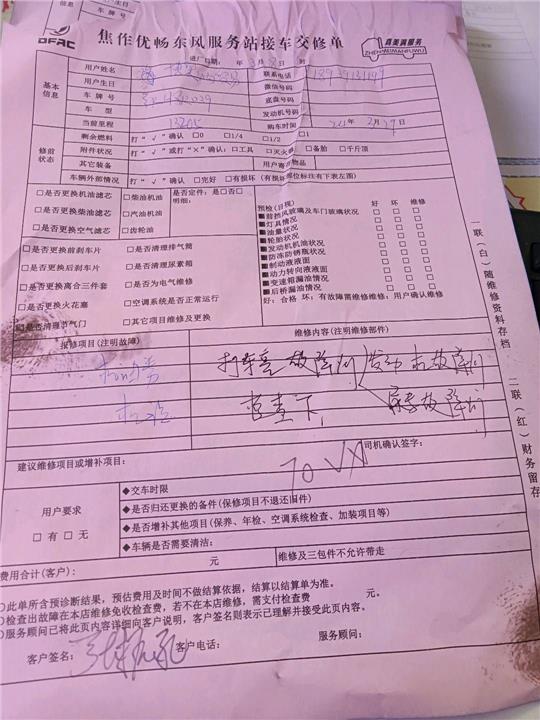 DFAC
焦作优畅东风服务站接车交修单
真美满服务
ZHENMEIMANFUWU
进厂日期: 年 月 日 到
基本信息
用户姓名 联系电话
用户生日 微信号码
车牌号 底盘号码
车型 发动机号码
当前里程 购车时间 年 2月 日
修前状态
剩余燃料 打“√”确认 □0 □1/4 □1/2 □1
附件状况 打“√”或打“×”确认:□工具 □灭火器 □备胎 □千斤顶
其它装备 用户寄存物品
车辆外部情况 打“√”确认 □完好 □有损 (有损部位标注有下表左图)
□是否更换机油滤芯 □柴油机油 是否定件:是□否□
□是否更换柴油滤芯 □汽油机油 明细:
□是否更换空气滤芯 □齿轮油
□是否更换前刹车片 □是否清理排气筒
□是否更换后刹车片 □是否清理尿素箱
□是否更换离合三件套 □是否为电气维修
□是否更换火花塞 □空调系统是否正常运行
□是否清理节气门 □其它项目维修及更换
预检(目视) 好 坏 维修
■前挡风玻璃及车门玻璃状况 □ □ □
■灯具情况 □ □ □
■油量状况 □ □ □
■轮胎状况 □ □ □
■发动机机油状况 □ □ □
■防冻防锈瓶状况 □ □ □
■制动液液面 □ □ □
■动力转向液液面 □ □ □
■变速箱漏油情况 □ □ □
■后桥漏油情况 □ □ □
好:合格 坏:有故障需维修维修:用户确认维修
报修项目(注明故障) 维修内容(注明维修部件)
打车亮故障灯 发动机故障灯
查查下
建议维修项目或增补项目: 司机确认签字:
用户要求
□有 □无
◆交车时限
◆是否归还更换的备件(保修项目不退还旧件)
◆是否增补其他项目(保养、年检、空调系统检查、加装项目等)
◆车辆是否需要清洁:
费用合计(客户): 元 维修及三包件不允许带走
○此单所含预诊断结果,预估费用及时间不做结算依据,结算以结算单为准。
○检查出故障在本店维修免收检查费,若不在本店维修,需支付检查费 元。
○服务顾问已将此页内容详细向客户说明,客户签名则表示已理解并接受此页内容。
客户签名: 客户电话: 服务顾问:
一联(白)随维修资料存档
二联(红)财务留存